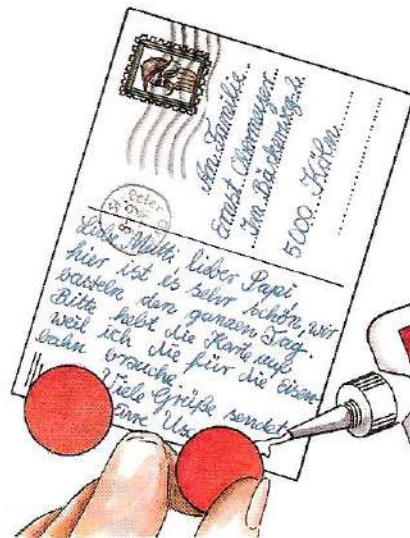 An Familie
Ernst
Im Bäckerweg
5000 Köln
Peter
Liebe Mutti, lieber Papi
hier ist es sehr schön, wir
basteln den ganzen Tag.
Bitte hebt die Karte auf
weil ich die für die Eisen-
bahn brauche.
Viele Grüße sendet
Eure Us